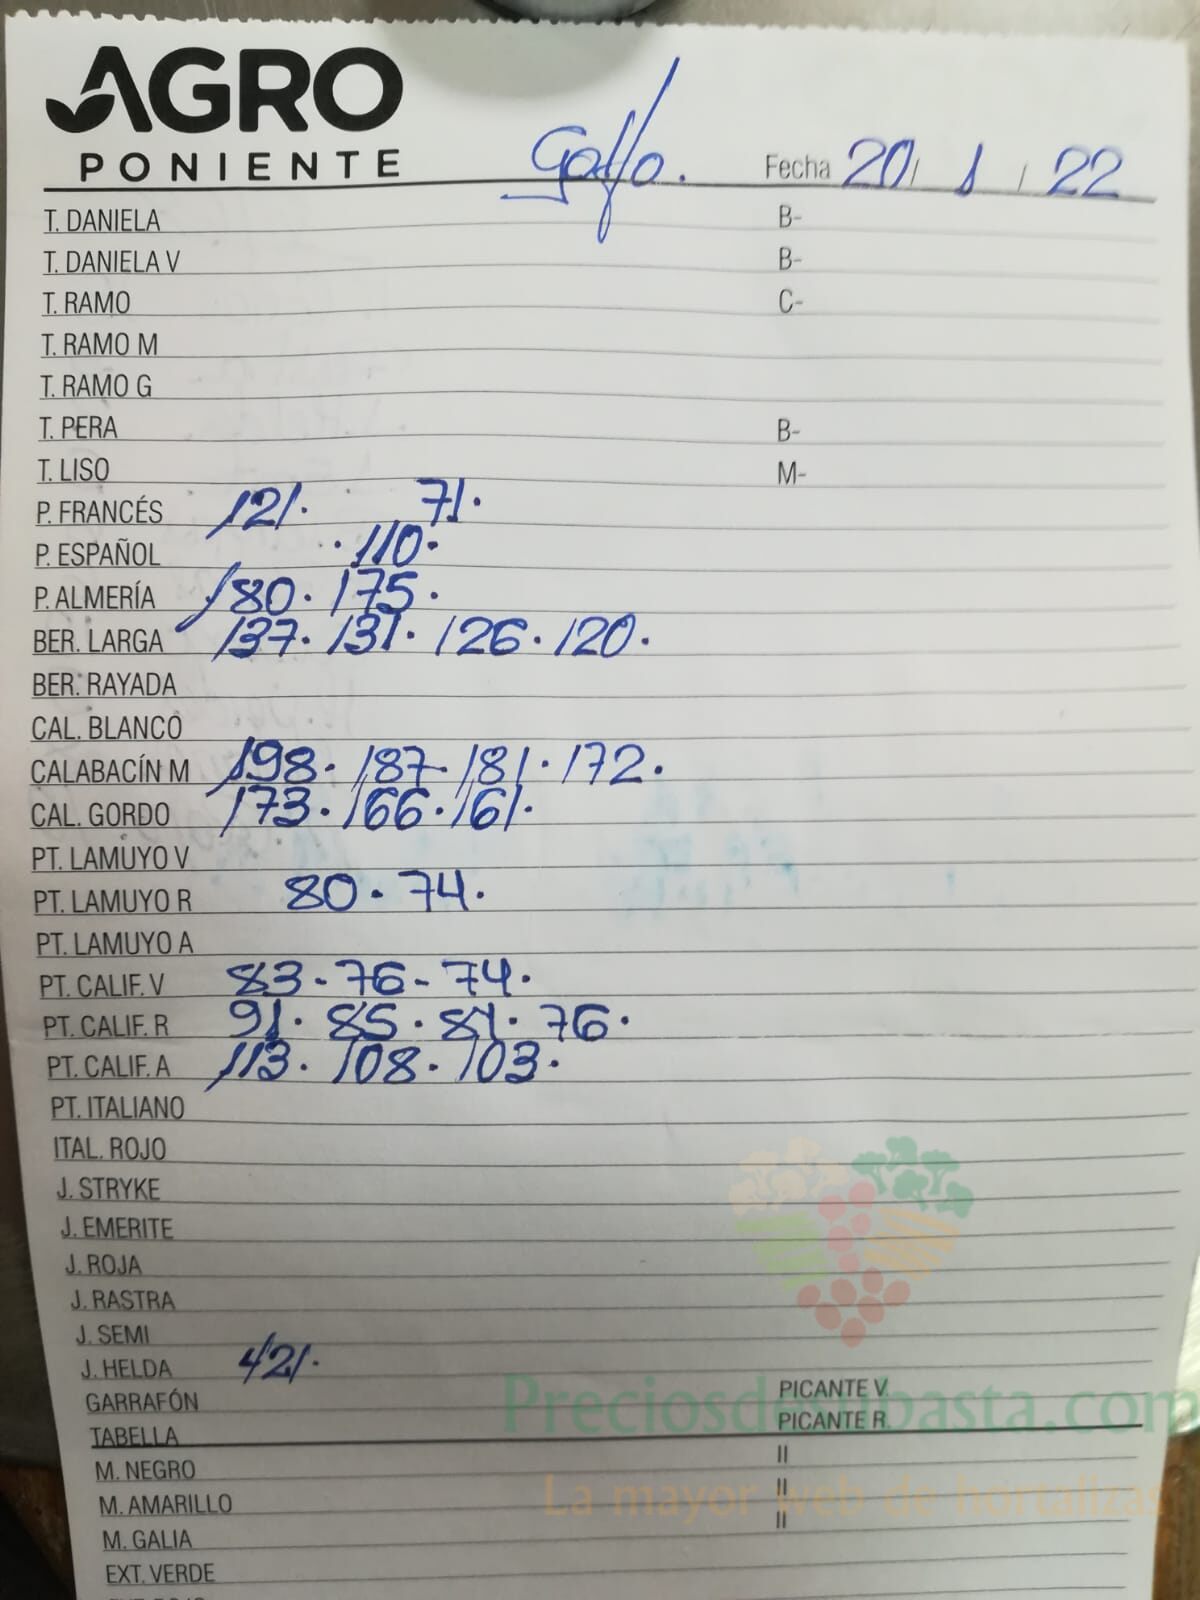 AGRO
PONIENTE
Gallo. Fecha 20/ 1 / 22
T. DANIELA B-
T. DANIELA V B-
T. RAMO C-
T. RAMO M
T. RAMO G
T. PERA B-
T. LISO M-
P. FRANCÉS 121. 71.
P. ESPAÑOL .110.
P. ALMERÍA 180. 175.
BER. LARGA 137. 131. 126. 120.
BER. RAYADA
CAL. BLANCO
CALABACÍN M 198. 187- 181. 172.
CAL. GORDO 173. 166. 161.
PT. LAMUYO V
PT. LAMUYO R 80. 74.
PT. LAMUYO A
PT. CALIF. V 83-76-74.
PT. CALIF. R 91. 85. 81. 76.
PT. CALIF. A 113. 108. 103.
PT. ITALIANO
ITAL. ROJO
J. STRYKE
J. EMERITE
J. ROJA
J. RASTRA
J. SEMI
J. HELDA 421.
GARRAFÓN PICANTE V.
Preciosdesubasta.com
TABELLA PICANTE R.
M. NEGRO II
M. AMARILLO II
La mayor web de hortalizas
M. GALIA II
EXT. VERDE